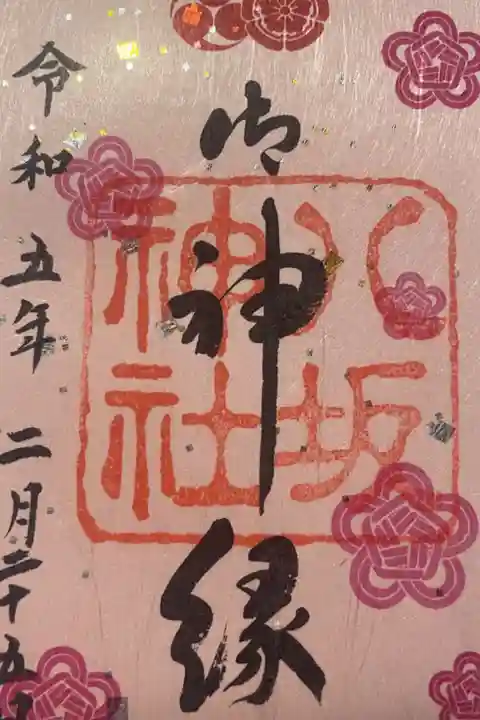 御神縁
八坂
神社
令和 五年 二月二十五日